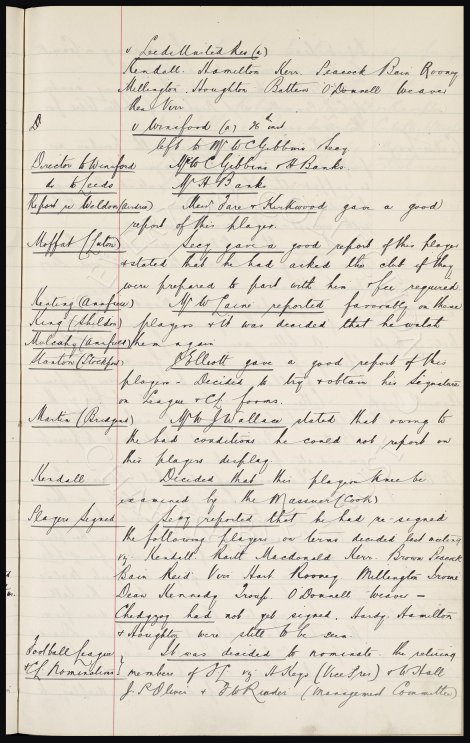 v Leeds United Res (a)
Kendall. Hamilton Kerr. Peacock Bain Rooney
Millington. Houghton Battars O'Donnell Weaver
Res Virr
v Winsford (a) 16th inst
left to Mr W C Gibbins & Secy
Director to Winsford Mr W C Gibbins & H Banks
do to Leeds Mr H Banks
Report re Weldon (Airdrie) Messrs Fare & Kirkwood gave a good
report of this player.
Moffat (Luton) Secy gave a good report of this player
& stated that he had asked the club if they
were prepared to part with him & fee required
Keating (Amfield) Mr W Laine reported favorably on these
King (Shildon) players & it was decided that he watch
Mulcahy (Anfield) them again
Stanton (Stockport) P Elliott gave a good report of this
player - Decided to try & obtain his signature
on League & C.L. forms.
Martin (Bridgend) Mr W J Wallace stated that owing to
the bad conditions he could not report on
this players display.
Kendall Decided that this players knee be
examined by the Masseur (Cook)
Players Signed Secy reported that he had re-signed
the following players on terms decided last meeting
viz Kendall Raitt Macdonald Kerr. Brown Peacock
Bain Reid. Virr Hart Rooney Millington Irvine
Dean Kennedy Troup. O'Donnell Weaver -
Chedgzoy had not yet signed. Hardy, Hamilton
& Houghton were still to be seen.
Football League It was decided to nominate the retiring
& C.L. Nominations members of F L viz H Keys (Vice Pres) & W Hall
J. P Oliver & F W Rinder (Management Committee)